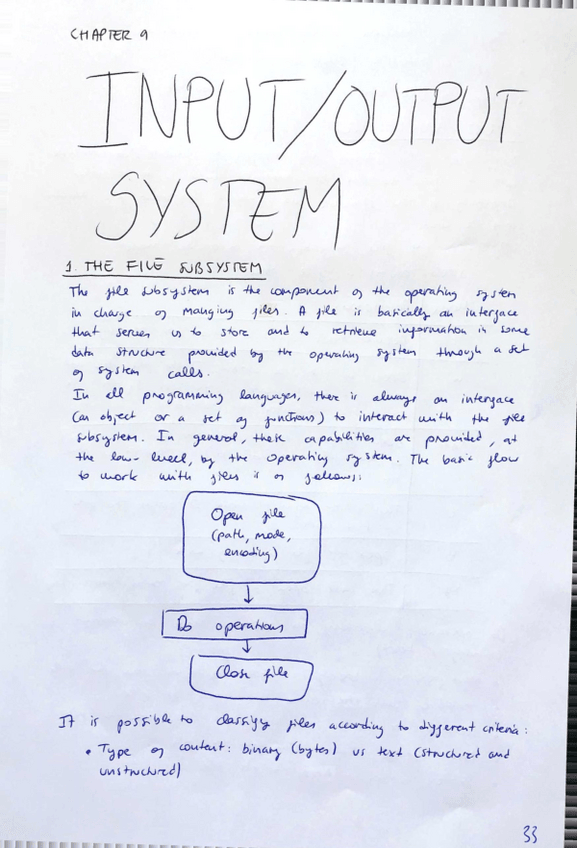 CHAPTER 9
INPUT/OUTPUT
SYSTEM
1. THE FILE SUBSYSTEM
The file subsystem is the component of the operating system
in charge of manging files. A file is basically an interface
that serves us to store and to retrieve information in some
data structure provided by the operating system through a set
of system calls.
In all programming languages, there is always an interface
(an object or a set of functions) to interact with the file
subsystem. In general, these capabilities are provided, at
the low-level, by the operating system. The basic flow
to work with files is as follows:
Open file
(path, mode,
encoding)
Do operations
Close file
It is possible to classify files according to different criteria:
• Type of content: binary (bytes) vs text (structured and
unstructured)
33